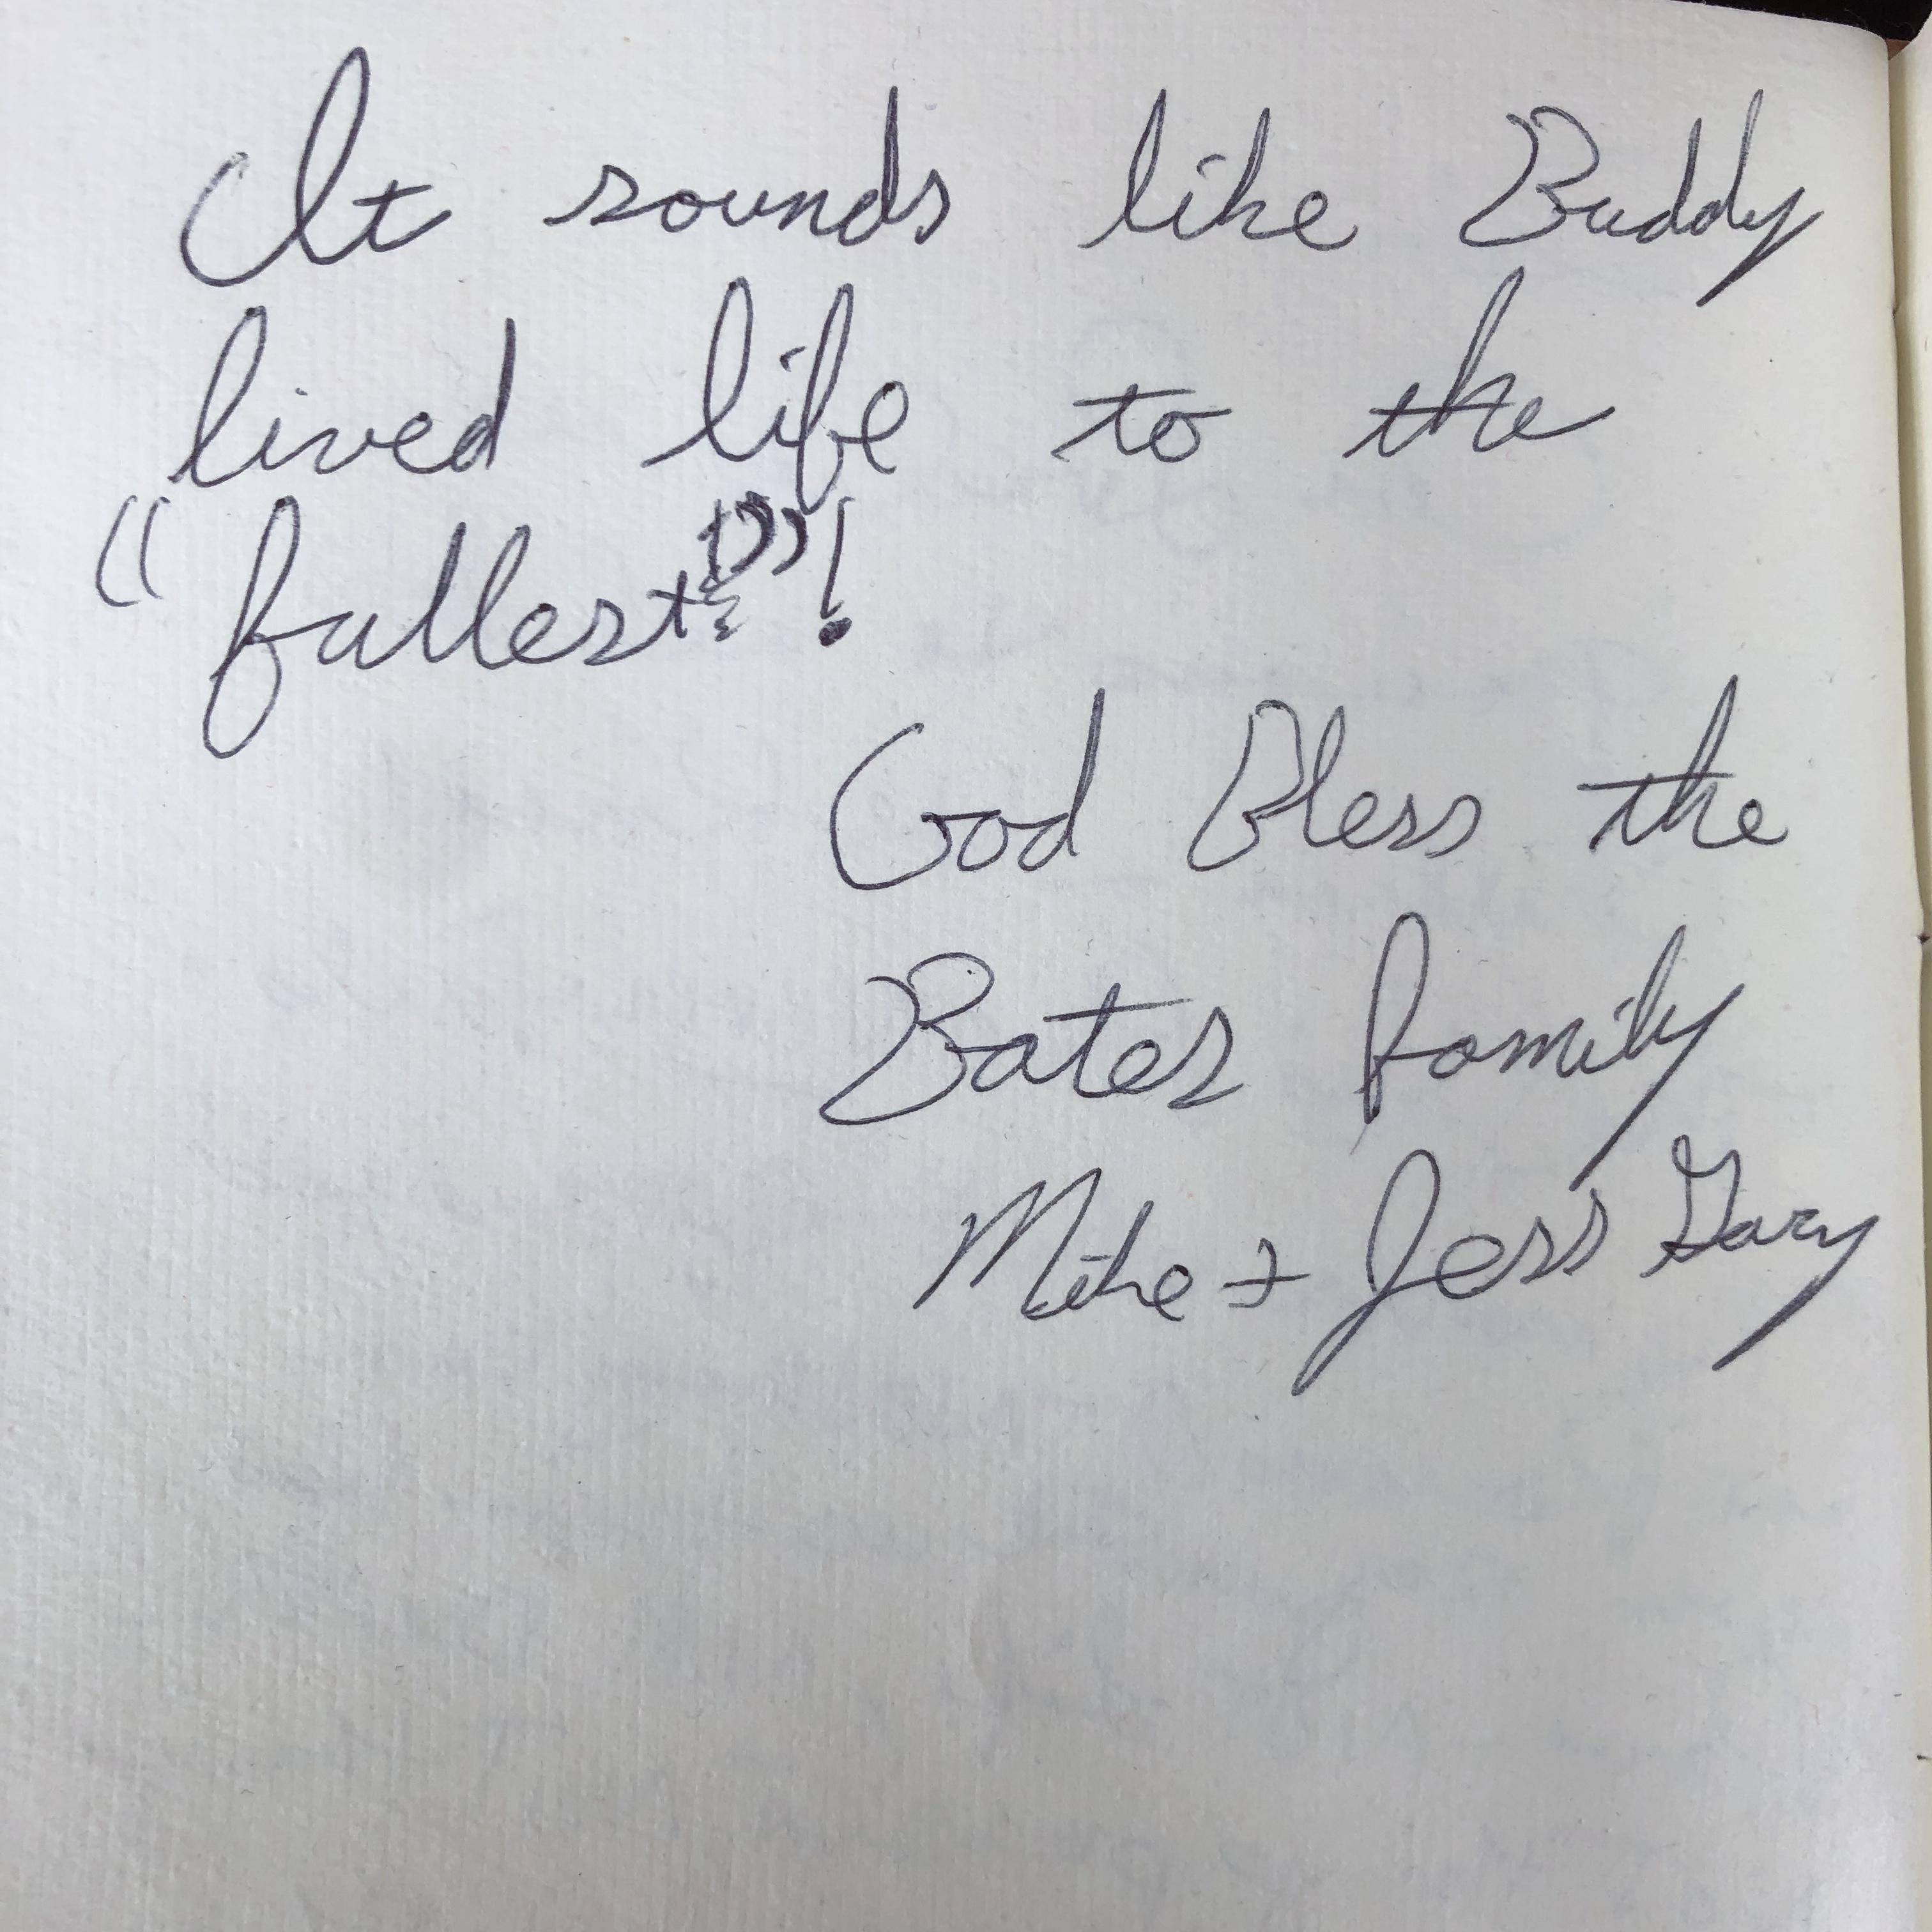 It sounds like Buddy
lived life to the
"fullest"!
God Bless the
Bates family
Mike + Jess Gary